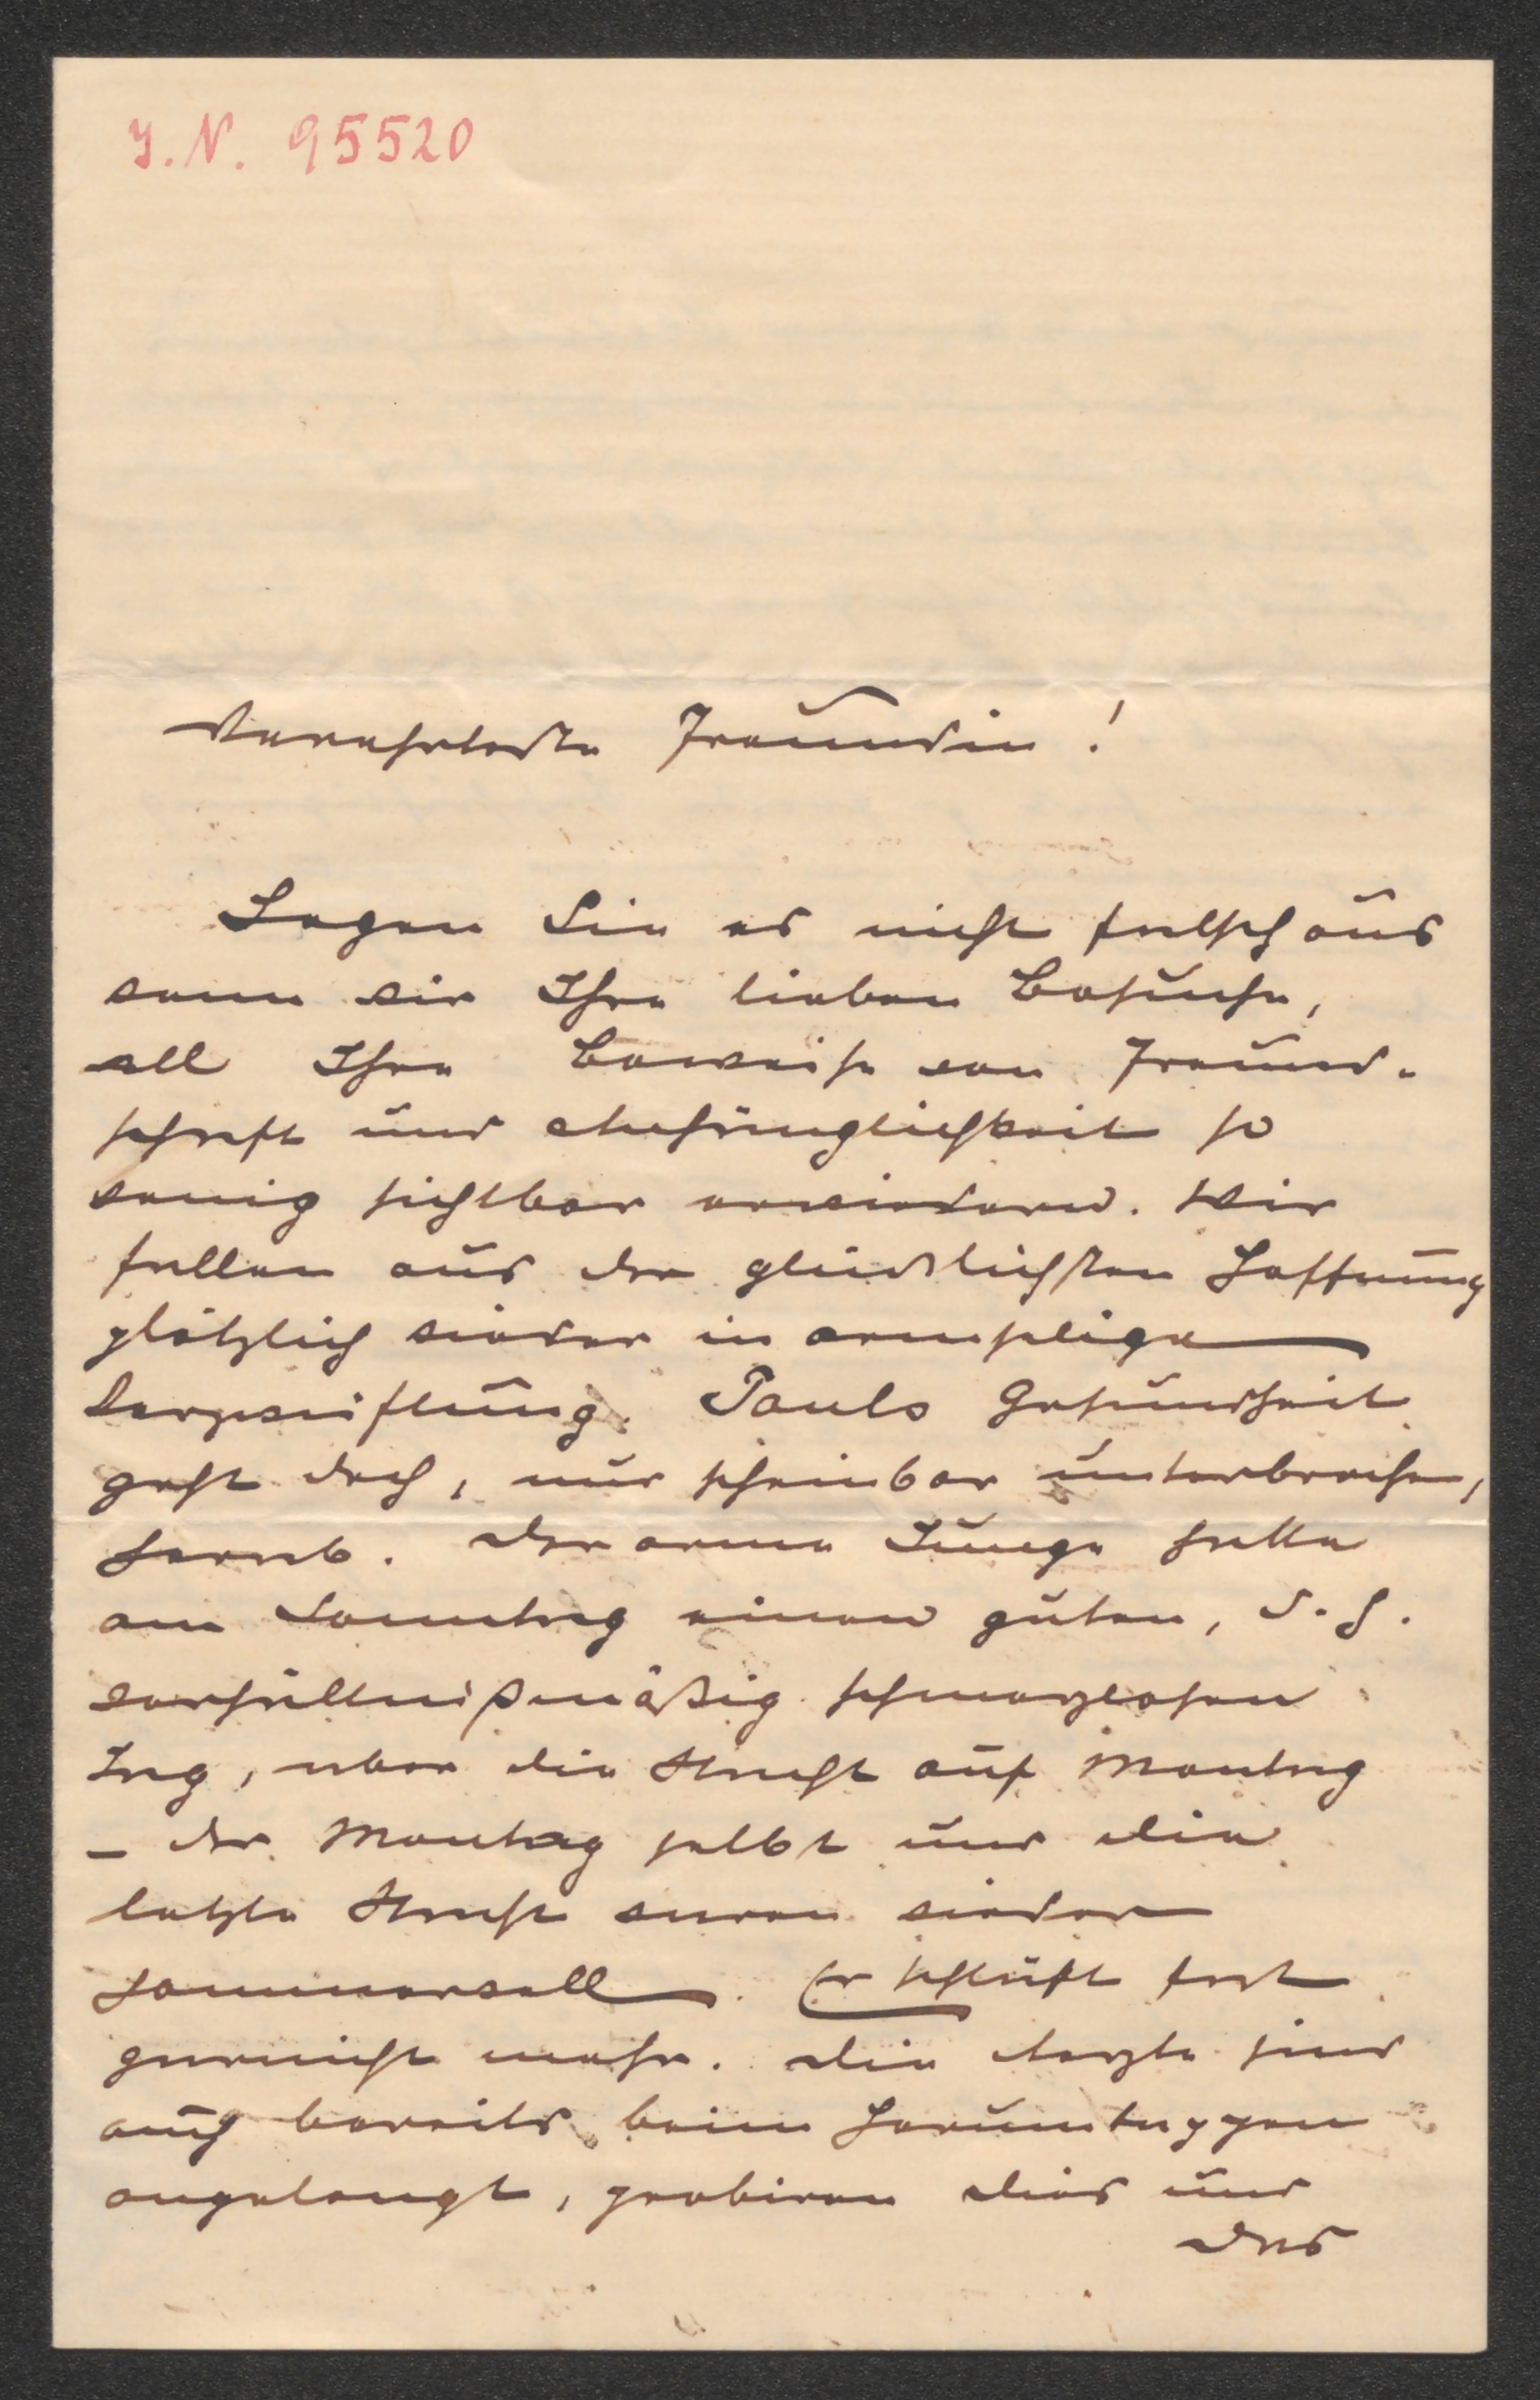 I.N. 95520
Verehrteste Freundin!
Legen Sie es nicht falsch aus
wenn wir Ihre lieben Besuche,
all Ihre Beweise von Freund-
schaft und Anhänglichkeit so
wenig sichtbar erwiedern. Wir
fallen aus der glücklichsten Hoffnung
plötzlich wieder in armselige
Verzweiflung. Pauls Gesundheit
geht doch, nur scheinbar unterbrochen,
herab. Der arme Junge hatte
am Sonntag einen guten, d. h.
verhältnißmäßig schmerzlosen
Tag, aber die Nacht auf Montag
– der Montag selbst und die
letzte Nacht waren wieder
jammervoll. Er schläft fast
garnicht mehr. Die Aerzte sind
auch bereits beim Herumtappen
angelangt, probiren dies und
das